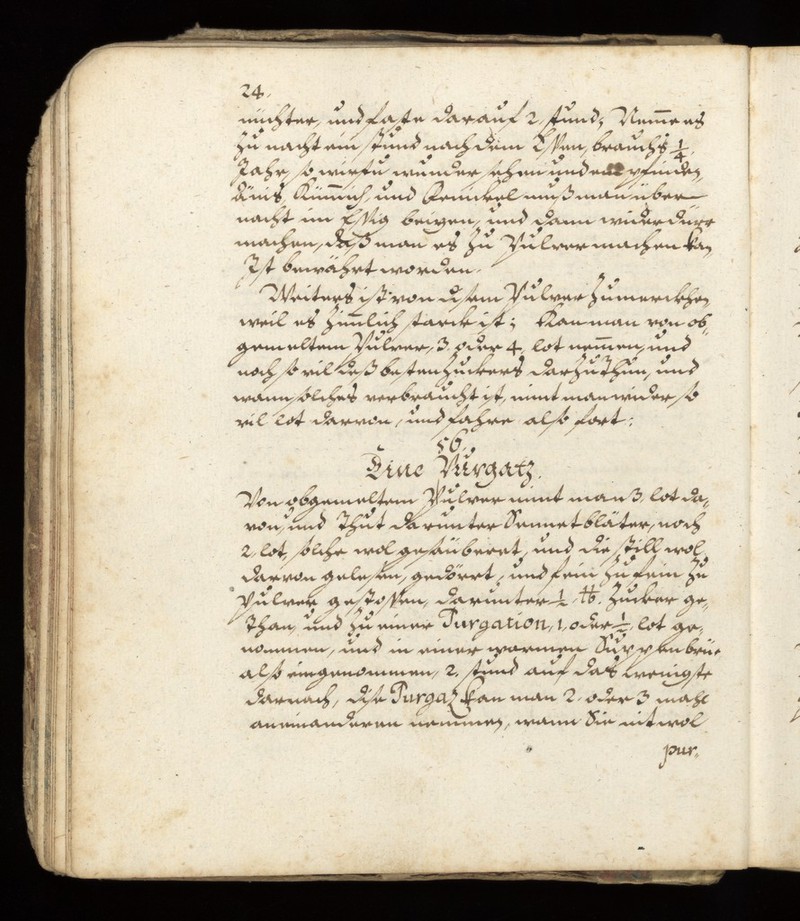 24.
nüchter, und faste darauf 2. stund, Nem̄e es
zu nacht ein stund nach dem Essen, brauchs 1/4.
Jahr, so wirstu wunder sehen und empfinden,
Änis, Küm̄ich, und Fenickel muß man über
nacht im Essig beizen, und dann wider dürr
machen, daß man es zu Pulver machen kan,
Ist bewährt worden.
Weiters ist von disem Pulver zumerckhen,
weil es zim̄lich starck ist; Kan man von ob-
gemeltem Pulver, 3. oder 4. lot nem̄en, und
noch so vil deß besten Zuckers darzu thun, und
wann solches verbraucht ist, nimt man wider so
vil lot darvon, und fahre also fort:
56.
Eine Purgatz.
Von obgemeltem Pulver nimt man 3. lot da-
von, und thut darunter Sennetbläter, noch
2. lot, solche wol gesäüberet, und die still wol
darvon gelesen, gedörrt, und fein zu fein zu
Pulver gestossen, darunter 1/2 ℔. Zucker ge-
than, und zu einer Purgation, 1. oder 1/2. lot ge-
nommen, und in einer warmen Suppenbrüe
also eingenommen, 2. stund auf das wenigste
darnach, dise Purgaz kan man 2. oder 3 mahl
aneinanderen nemmen, wann Sie nit wol
pur-